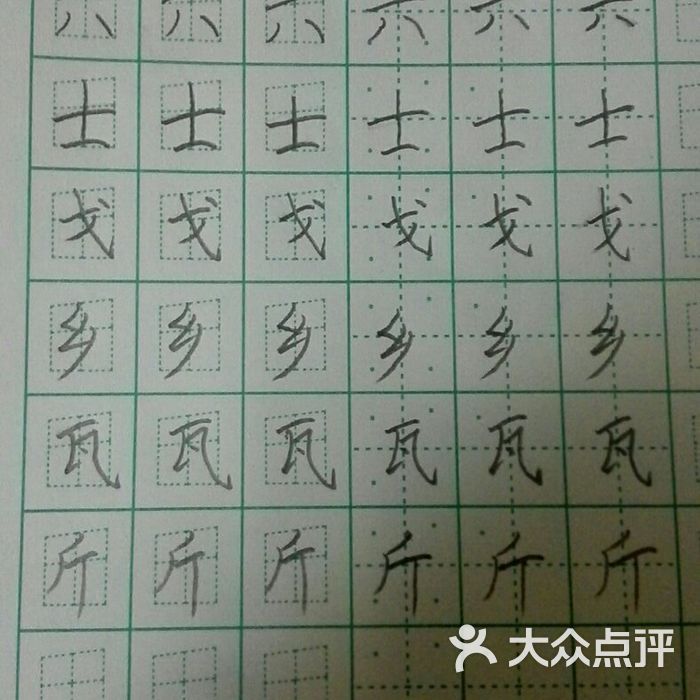 六 六 六 六 六 六
士 士 士 士 士 士
戈 戈 戈 戈 戈 戈
乡 乡 乡 乡 乡 乡
瓦 瓦 瓦 瓦 瓦 瓦
斤 斤 斤 斤 斤 斤
大众点评